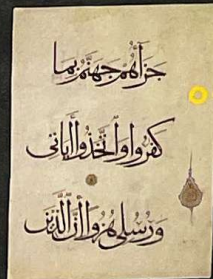 جَزَاؤُهُمْ جَهَنَّمُ بِمَا
كَفَرُوا وَاتَّخَذُوا آيَاتِي
وَرُسُلِي هُزُوًا إِنَّ الَّذِينَ